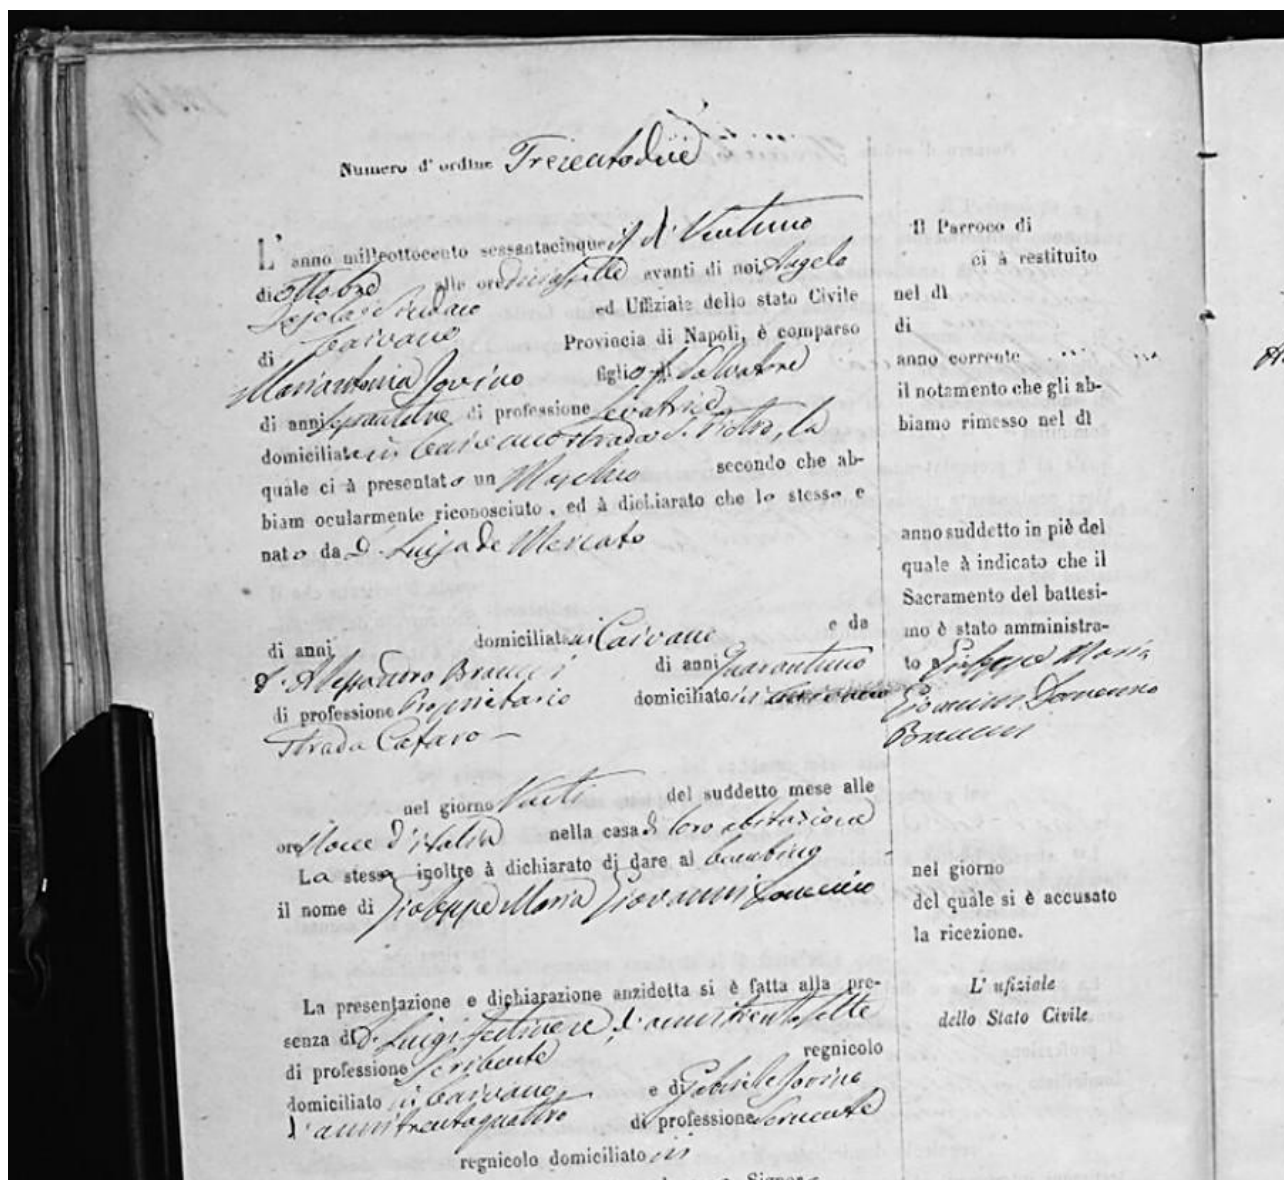 Numero d'ordine Trecentodieci
L'anno milleottocento sessantacinque il dì Ventuno
di Ottobre alle ore diciassette avanti di noi Angelo
Sindaco ed Uffiziale dello stato Civile
di Caivano Provincia di Napoli, è comparso
Mariantonia Iovino figlia di Salvatore
di anni di professione Levatrice
domiciliata in Caivano strada S. Pietro, la
quale ci à presentato un Maschio secondo che ab-
biam ocularmente riconosciuto, ed à dichiarato che lo stesso e
nato da D. Luisa de Mercato
di anni domiciliata in Caivano e da
D. Alessandro Braucci di anni Quarantuno
di professione Proprietario domiciliato in Caivano
Strada Cafaro
nel giorno Venti del suddetto mese alle
ore Nove d'Italia nella casa di loro abitazione
La stessa inoltre à dichiarato di dare al bambino
il nome di Giuseppe Maria Giovanni Domenico
La presentazione e dichiarazione anzidetta si è fatta alla pre-
senza di D. Luigi d'anni trentasette
di professione Scribente regnicolo
domiciliato in Caivano e di Gabriele Iovino
d'anni trentaquattro di professione Serviente
regnicolo domiciliato in
Il Parroco di
ci à restituito
nel dì
di
anno corrente
il notamento che gli ab-
biamo rimesso nel dì
anno suddetto in piè del
quale à indicato che il
Sacramento del battesi-
mo è stato amministra-
to a Giuseppe Maria
Giovanni Domenico
Braucci
nel giorno
del quale si è accusato
la ricezione.
L' ufiziale
dello Stato Civile